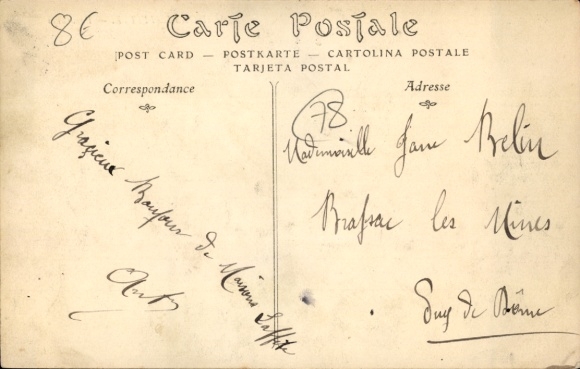 8€
Carte Postale
POST CARD — POSTKARTE — CARTOLINA POSTALE
TARJETA POSTAL
Correspondance
Adresse
Gracieux Bonjour de Maisons Laffite
78
Mademoiselle Jane Belin
Brassac les Mines
Puy de Dôme